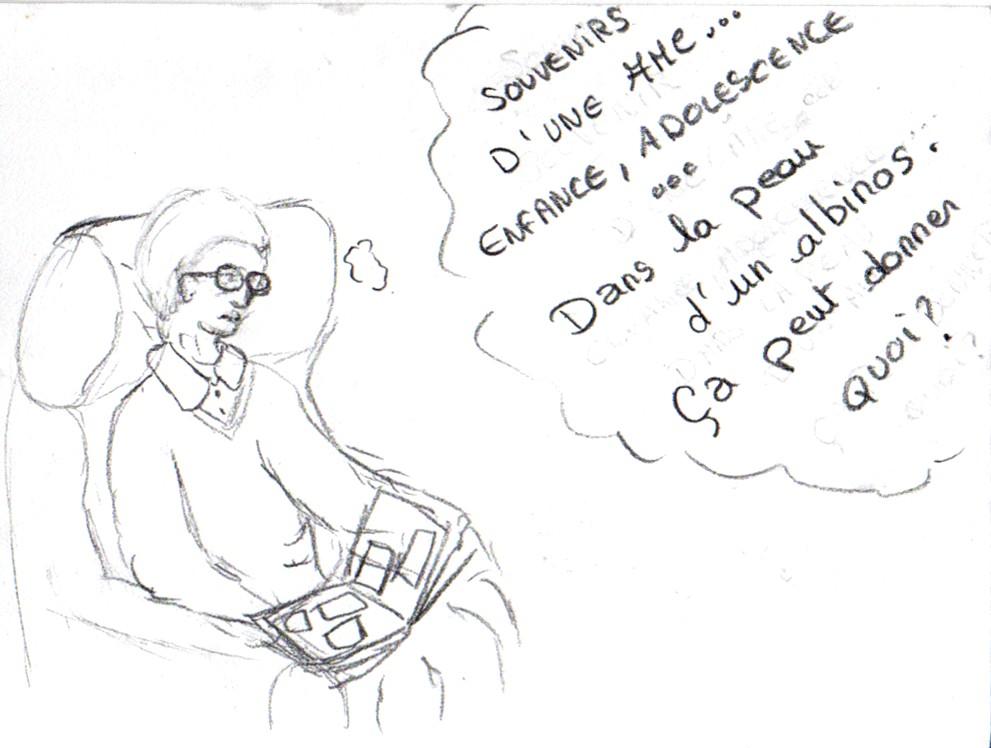 SOUVENIRS
D'UNE AME...
ENFANCE, ADOLESCENCE
...
Dans la peau
d'un albinos.
Ça peut donner
QUOI?